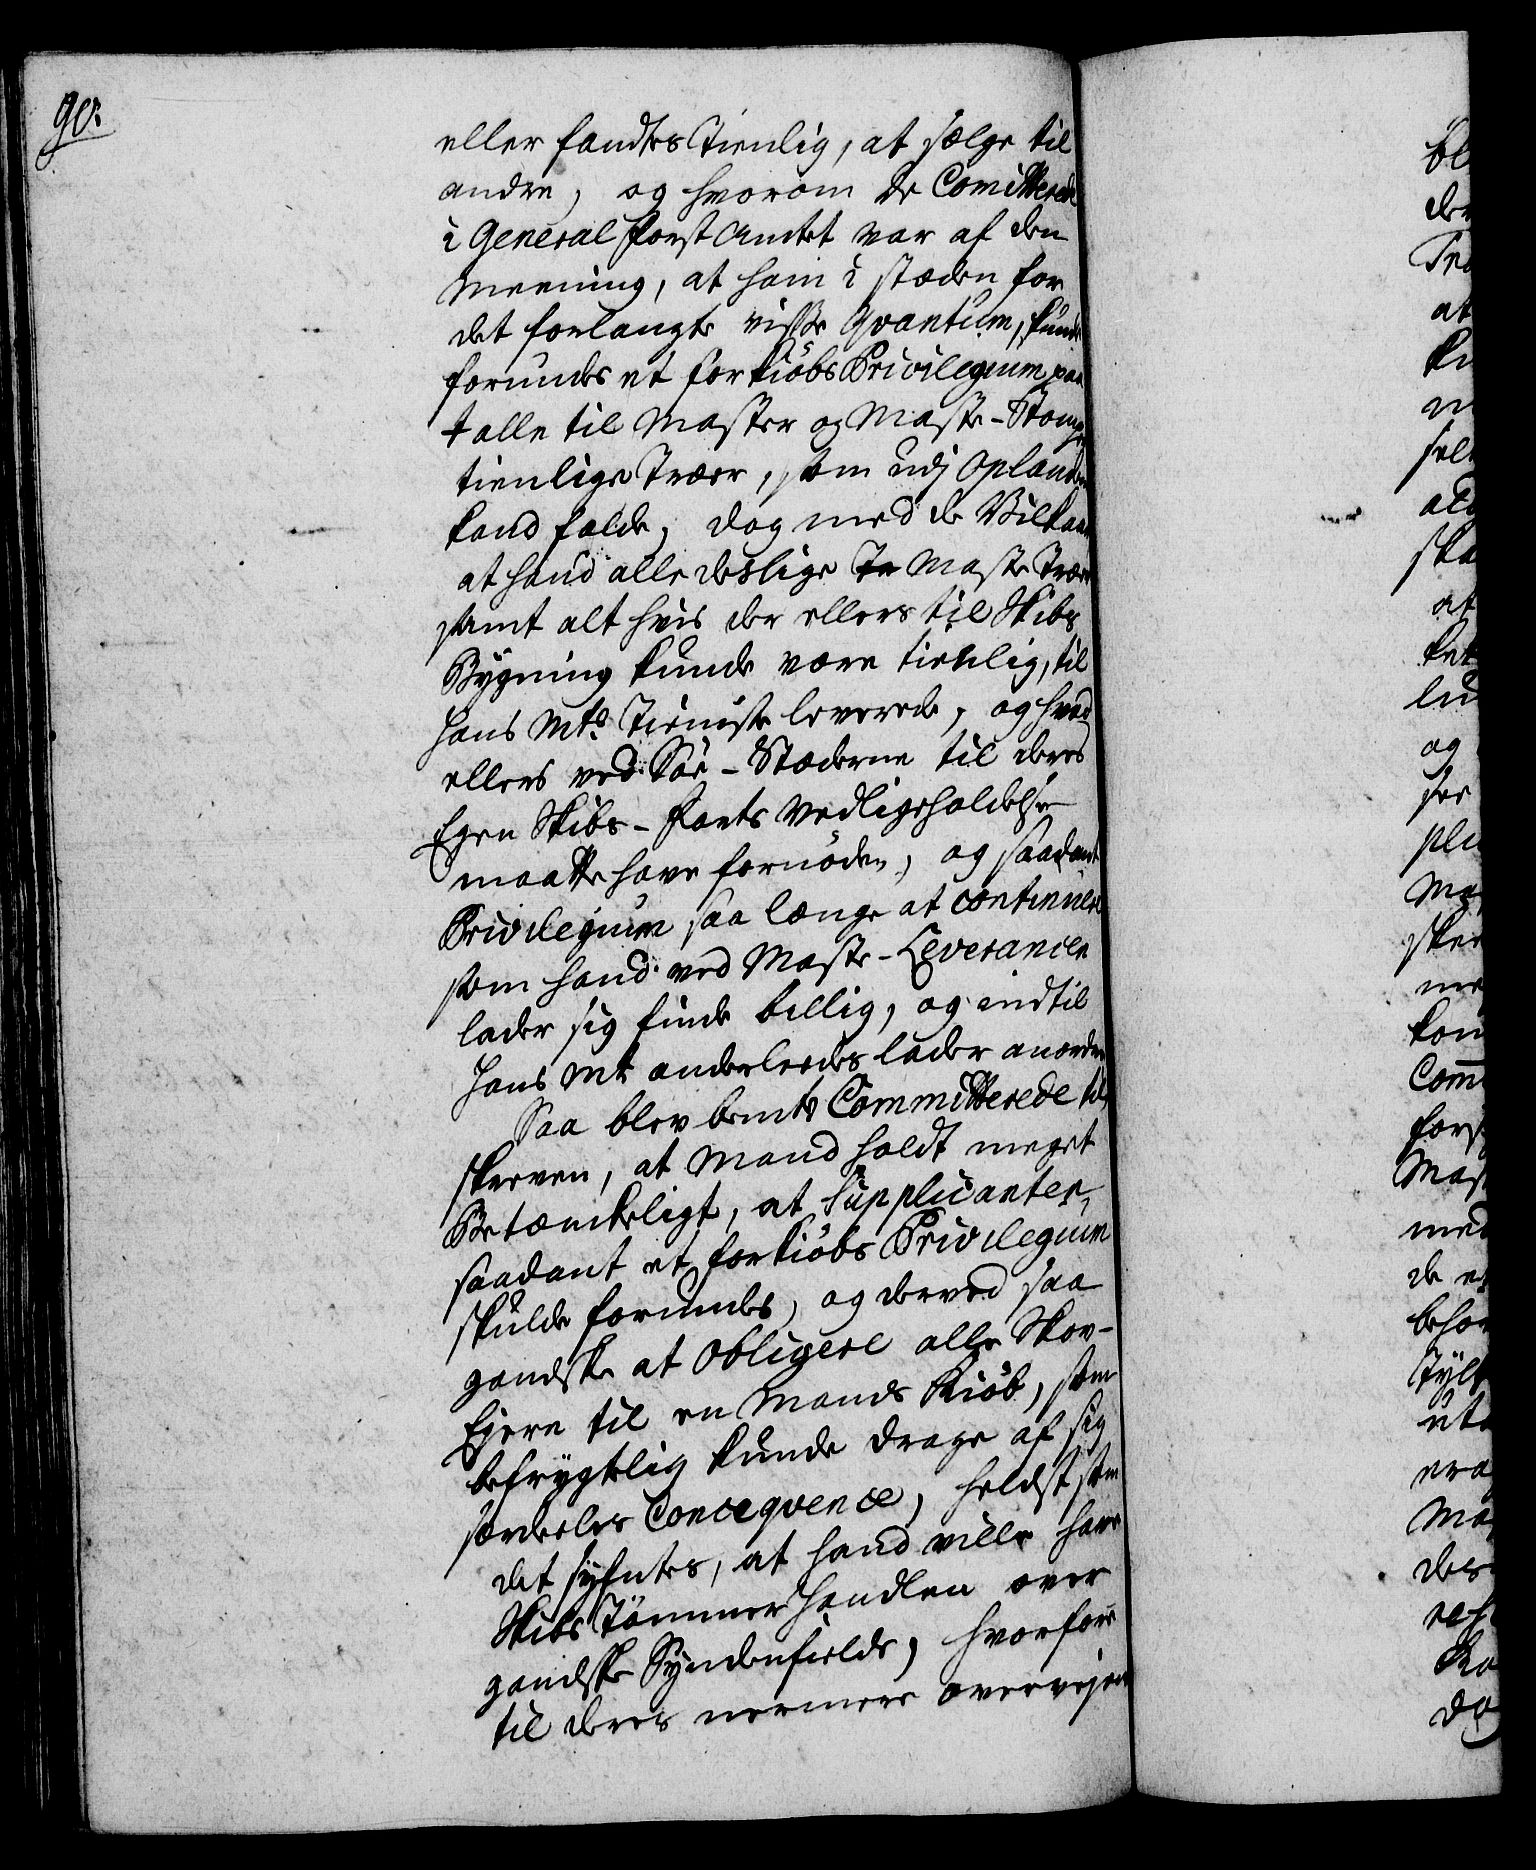 90.
eller fandtes Tienlig, at sælge til
andre, og hvorom de Comitterede
i General Forst Amtet var af den
Meening, at ham i stæden for
det forlangte visse Qvantum, kunde
forundes et forkiøbs Privilegium paa
alle til Master og Maste-Stomper
tienlige Træer, som udj Oplandene
kand falde, dog med de Vilkaar
at hand alle deslige Maste Træer
samt alt hvis der ellers til Skibs
Bygning kunde være tienlig, til
Hans Mts. Tieniste leverede, og hvad
ellers ved Søe-Stæderne til deres
Egen Skibs-farts Vedligeholdelse
maatte have fornøden, og saadant
Privilegium saa længe at continuere
som hand ved Maste-Leverancen
lader sig finde billig, og indtil
Hans Mt anderleedes lader anordne
Saa blev bemte Committerede til-
skreven, at Mand holdt meget
Betænkeligt, at Supplicanten
saadant et forkiøbs Privilegium
skulde forundes, og derved saa
gandske at obligere alle Skov-
Ejere til en Mands Kiøb, som
befrygtelig kunde drage af sig
særdeeles Conceqvence, heldst som
det syfntes, at hand ville have
Skibs Tømmer Handlen over
gandske Syndenfields, hvorfore
til deres nermere overvejen